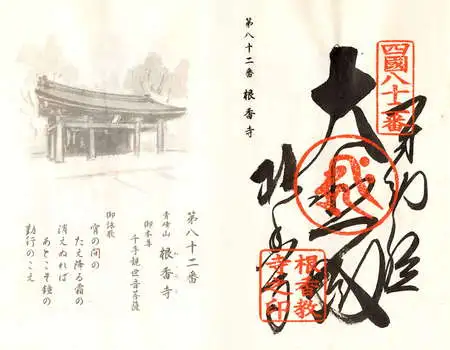 四國八十二番
大悲殿
根香教
寺之印
第八十二番 根香寺
第八十二番
青峰山 根香寺
御本尊
千手観世音菩薩
御詠歌
宵の間の
たえ降る霜の
消えぬれば
あとこそ鐘の
勤行のこえ